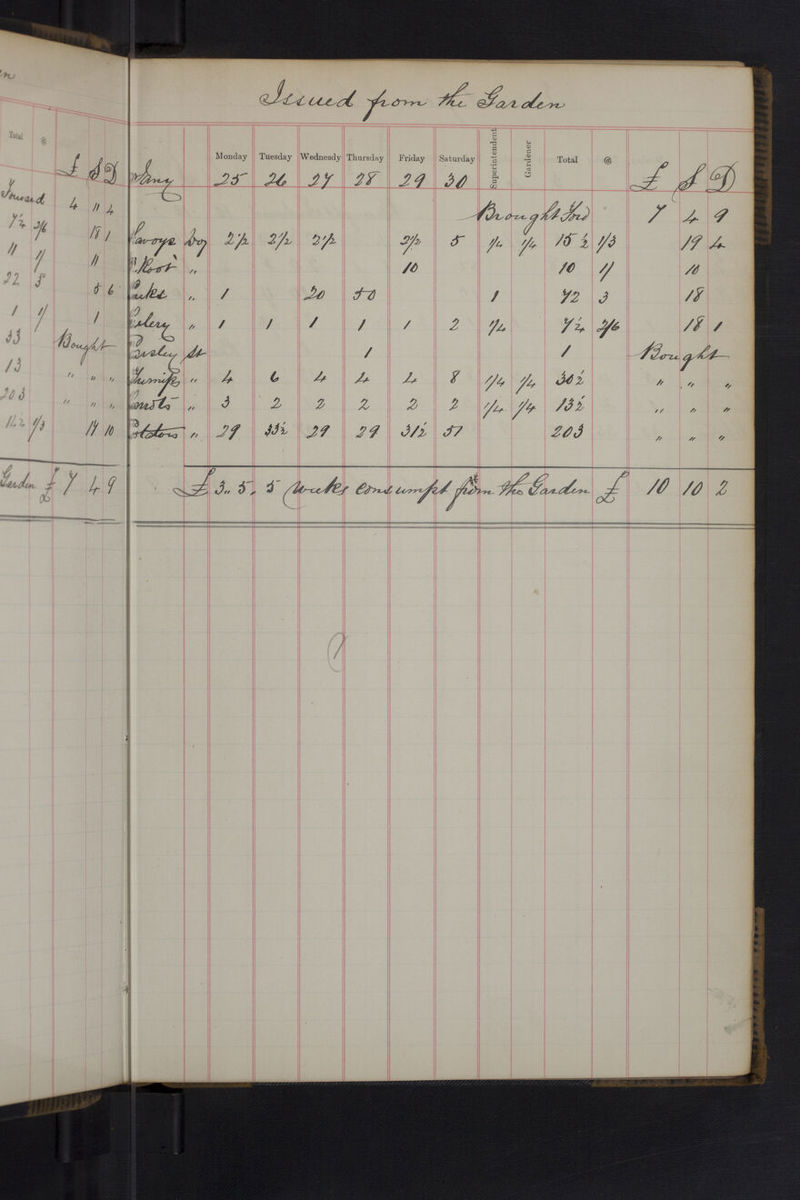 Issued from the Garden
Total @ £ S D
Forward 4 11 4
7¼ 2/6 18 1
11 1/ 11
22 3 5 6
1 1/ 1
33 Bought
13 " " "
203 " " "
1/3 19 10
Garden £ 7 4 9
Monday Tuesday Wednesdy Thursday Friday Saturday Superintendent Gardener Total @
Jany 25 26 27 28 29 30 £ S D
Brought Ford 7 4 9
Savoys Doz 2½ 2½ 2½ 2½ 5 ¼ ¼ 15½ 1/3 19 4
Root " 10 10 1/ 10
Leeks " 1 20 50 1 72 3 18
Celery " 1 1 1 1 1 2 ¼ 7¼ 2/6 18 1
Parsley St 1 1 Bought
Turnips " 4 6 4 4 4 8 ¼ ¼ 30½ " " "
Carrots " 3 2 2 2 2 2 ¼ ¼ 13½ " " "
Potatoes " 29 33½ 29 29 31½ 51 203 " " "
£3.. 5. 5 weeks consumpt from the Garden £ 10 10 2